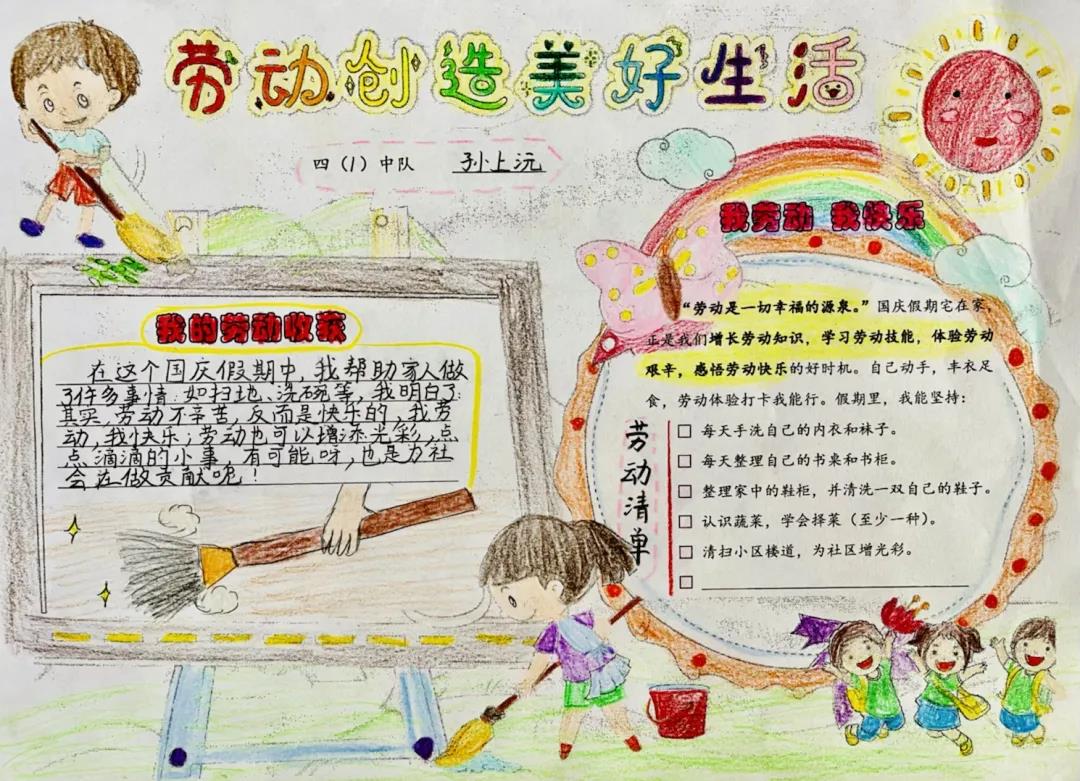 劳动创造美好生活
四(1)中队 孙上沅
我的劳动收获
在这个国庆假期中,我帮助家人做
了许多事情:如扫地、洗碗等,我明白了:
其实,劳动不辛苦,反而是快乐的,我劳
动,我快乐;劳动也可以增添光彩,点
点滴滴的小事,有可能呀,也是为社
会在做贡献呢!
我劳动 我快乐
“劳动是一切幸福的源泉。”国庆假期宅在家,
正是我们增长劳动知识,学习劳动技能,体验劳动
艰辛,感悟劳动快乐的好时机。自己动手,丰衣足
食,劳动体验打卡我能行。假期里,我能坚持:
劳动清单
□ 每天手洗自己的内衣和袜子。
□ 每天整理自己的书桌和书柜。
□ 整理家中的鞋柜,并清洗一双自己的鞋子。
□ 认识蔬菜,学会择菜(至少一种)。
□ 清扫小区楼道,为社区增光彩。